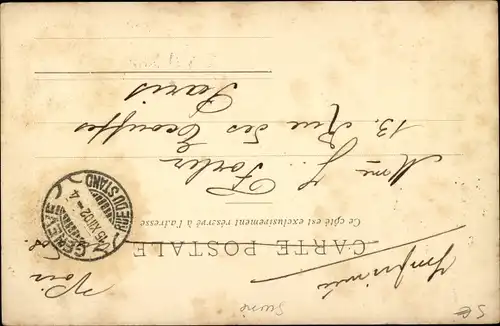 CARTE POSTALE
Ce côté est exclusivement réservé à l'adresse
Imprimé
GENÈVE
15 XII 02 – 4
RUE DU STAND
Mme
13. Rue des Ecouffes
Paris
Suisse
5€